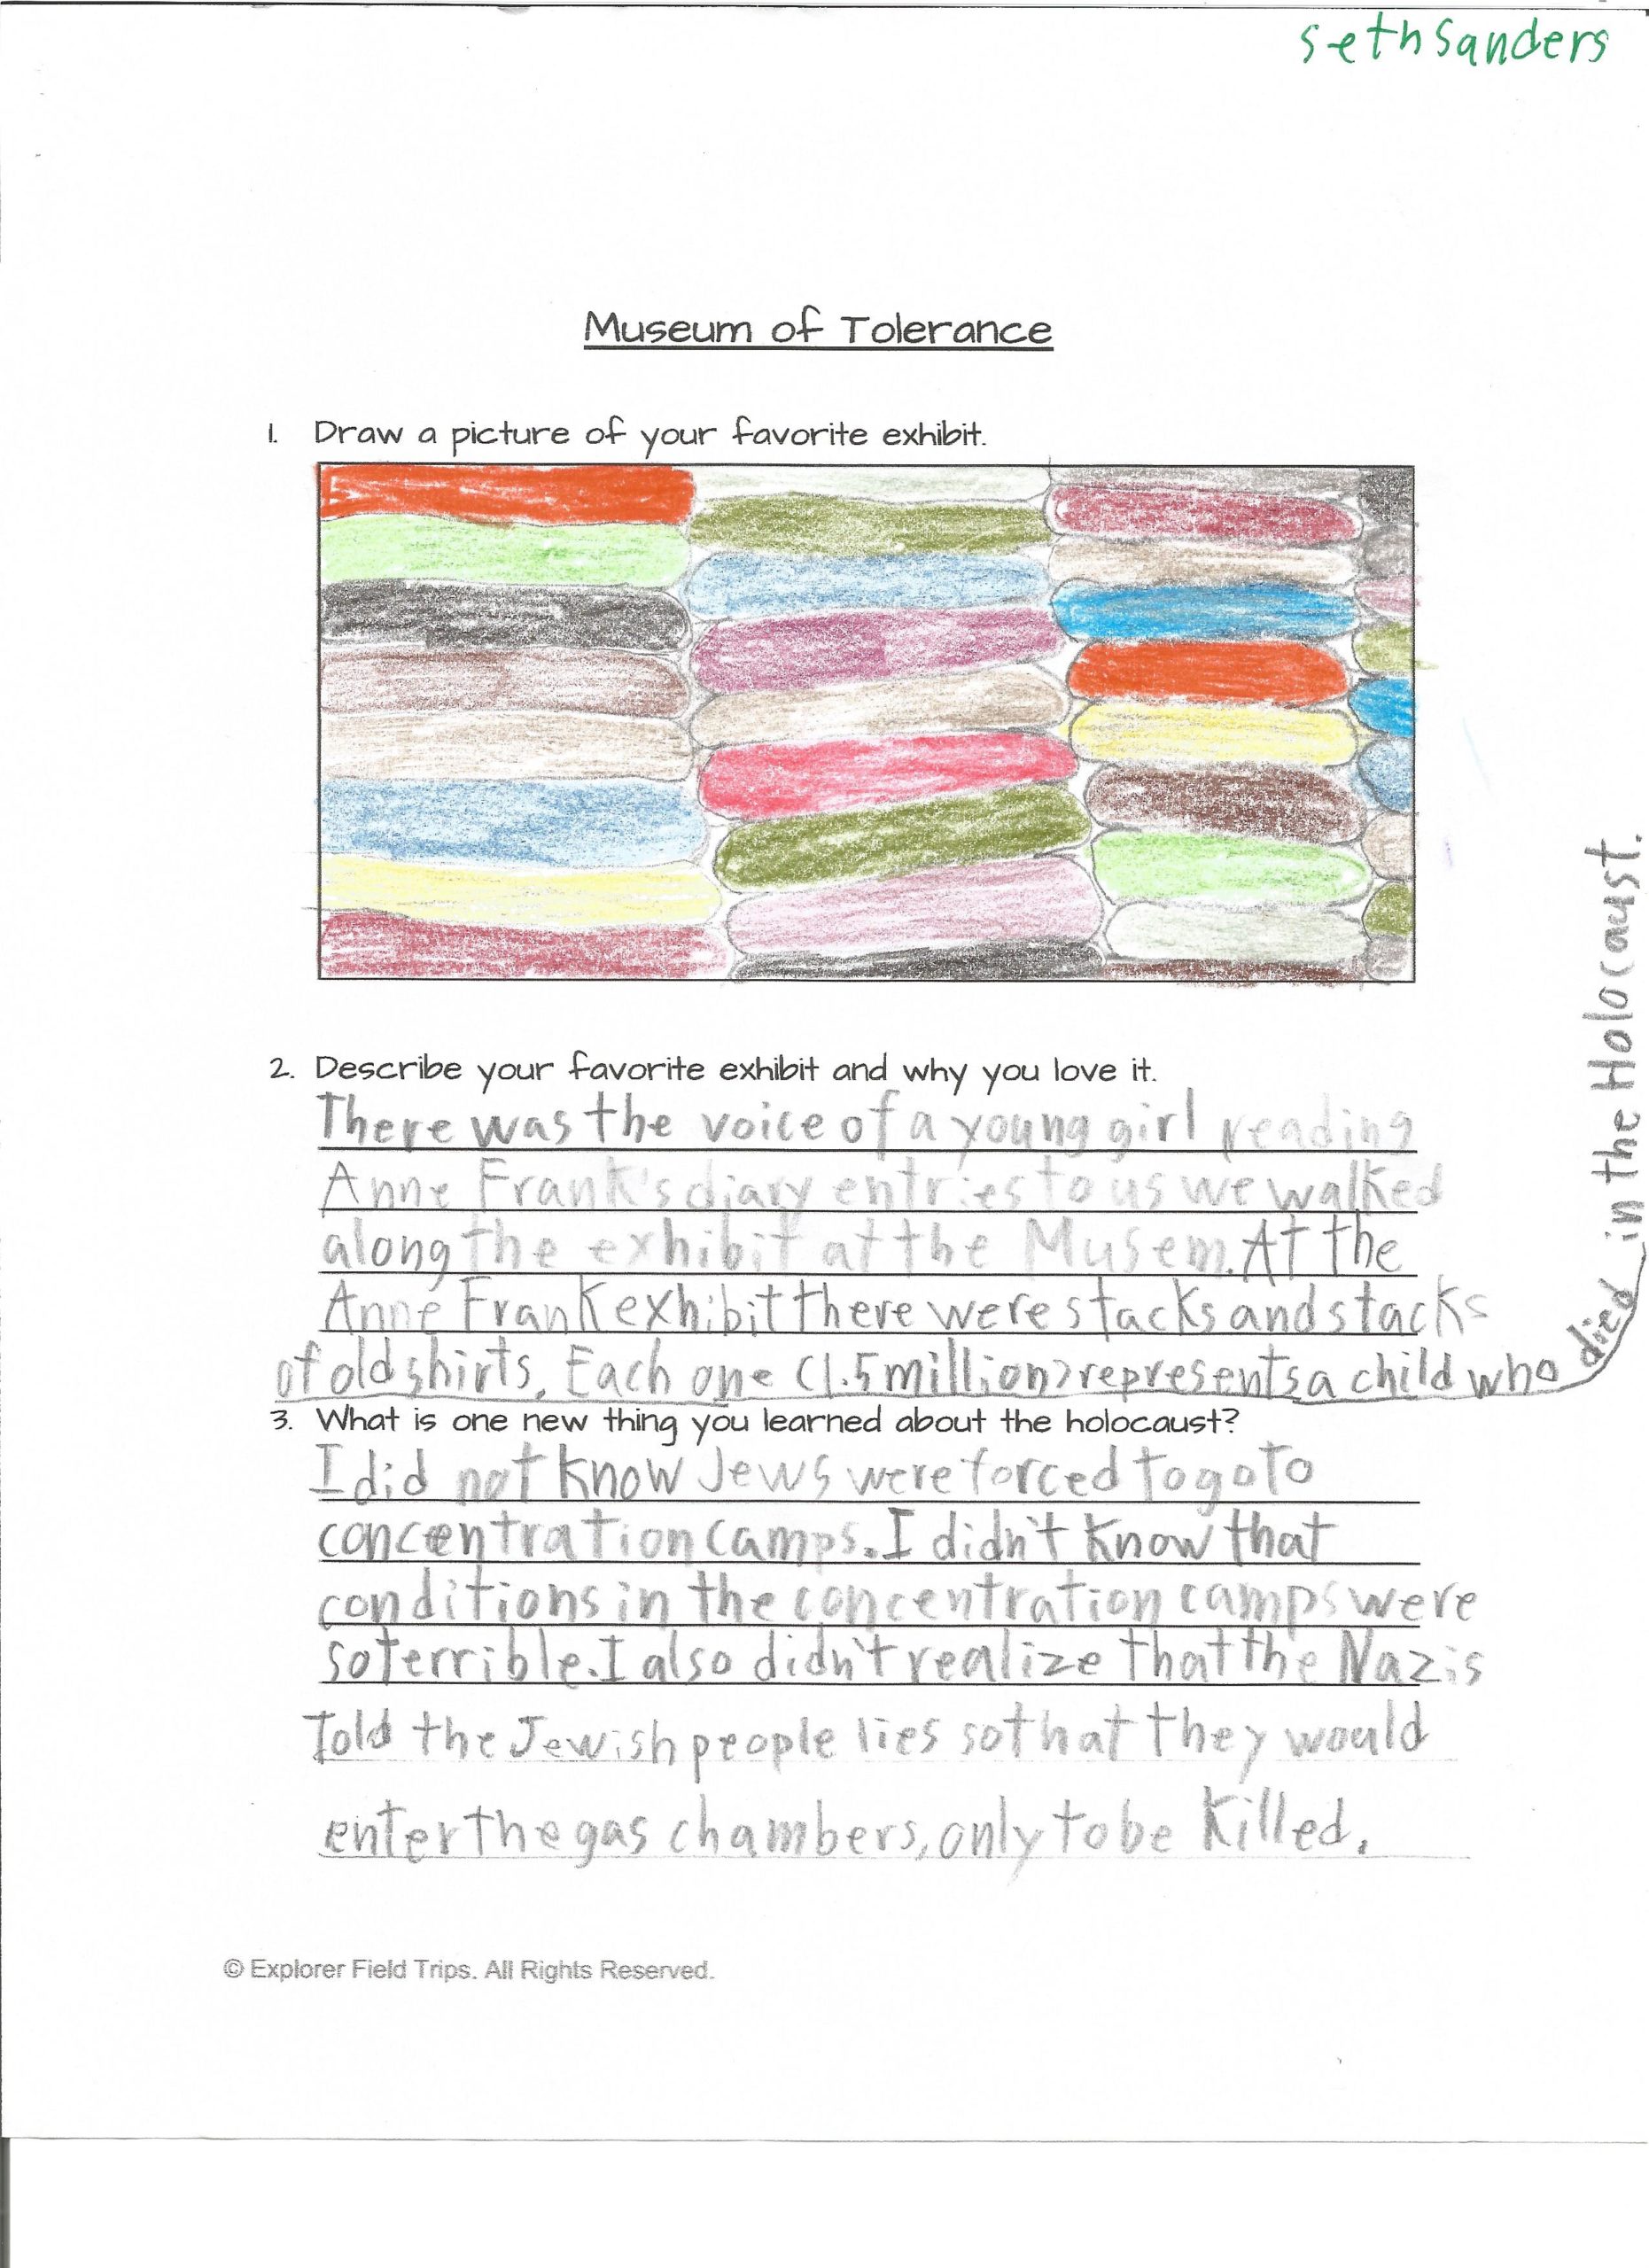 sethsanders
Museum of Tolerance
1. Draw a picture of your favorite exhibit.
2. Describe your favorite exhibit and why you love it.
There was the voice of a young girl reading
Anne Frank's diary entries to us we walked
along the exhibit at the Musem. At the
Anne Frank exhibit there were stacks and stacks
of old shirts. Each one (1.5 million) represents a child who died in the Holocaust.
3. What is one new thing you learned about the holocaust?
I did not know Jews were forced to go to
concentration camps. I didn't know that
conditions in the concentration camps were
so terrible. I also didn't realize that the Nazis
Told the Jewish people lies so that they would
enter the gas chambers, only to be killed.
© Explorer Field Trips. All Rights Reserved.